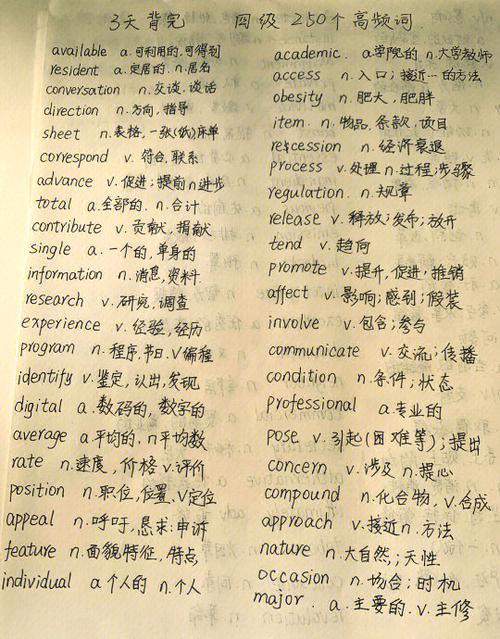 3天背完 四级250个高频词
available a.可利用的,可得到
resident a.定居的.n.居名
conversation n.交谈,谈话
direction n.方向,指导
sheet n.表格,一张(纸)床单
correspond v.符合,联系
advance v.促进;提前n进步
total a.全部的.n.合计
contribute v.贡献,捐献
single a.一个的,单身的
information n.消息,资料
research v.研究,调查
experience v.经验,经历
program n.程序,节目.V编程
identify v.鉴定,认出,发现
digital a.数码的,数字的
average a平均的.n平均数
rate n.速度,价格v.评价
position n.职位,位置.V定位
appeal n.呼吁,恳求;申诉
feature n.面貌特征,特点
individual a个人的n.个人
academic. a.学院的n.大学教师
access n.入口;接近…的方法
obesity n.肥大,肥胖
item n.物品,条款,项目
recession n.经济衰退
process v.处理n过程;步骤
regulation. n.规章
release v.释放;发布;放开
tend v.趋向
promote v.提升,促进;推销
affect v.影响;感到;假装
involve v.包含;参与
communicate v.交流;传播
condition n.条件;状态
professional a.专业的
pose v.引起(困难等);提出
concern v.涉及n.提心
compound n.化合物,v.合成
approach v.接近n.方法
nature n.大自然,;天性
occasion n.场合;时机
major. a.主要的.v.主修